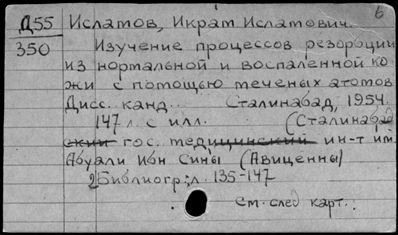 б
Д55 Исламов, Икрам Исламович.
350 Изучение процессов резорбции
из нормальной и воспаленной ко
жи с помощью меченых атомов
Дисс. канд.. Сталинабад, 1954.
147 л. с илл. (Сталинабад
ский гос. медицинский ин-т им.
Абуали Ибн Сины (Авиценны)
Библиогр.: л. 135-147
См. след карт..